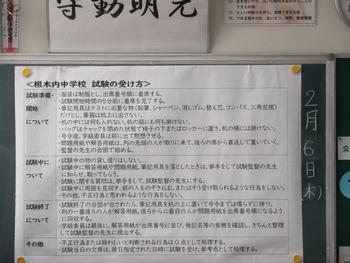 守動明元
<根木内中学校　試験の受け方>
試験準備・
開始
について
・服装は制服とし、出席番号順に着席する。
・試験開始時間の5分前に着席を完了する。
・筆記用具はテストに必要な物(鉛筆、シャーペン、消しゴム、替え芯、コンパス、三角定規)
だけとし、筆箱は机上に出さない。
・机の中には何も入れない。机の脇にも何も掛けない。
・バッグはチャックを閉めた状態で椅子の下またはロッカーに置き、机の横には掛けない。
・号令後、学級委員は前に出て黙想させる。
・問題用紙や解答用紙は、列の先頭の人が取りに来て、後ろの席から裏返して置いていく。
・監督の先生の合図で始める。
試験中に
ついて
・試験中の物の貸し借りはしない。
・試験中に問題用紙や解答用紙、筆記用具を落としたときは、挙手をして、試験監督の先生
に知らせ、取ってもらう。
・試験に関する質問は、挙手をして、試験監督の先生にする。
・試験中に周囲を見回す、前の人をのぞき込む、またはそう受け取られるような行為をしない。
・その他、不正行為と思われるような行為をしない。
試験終了
について
・試験終了の合図が出されたら、筆記用具を机の上に置いて号令までは喋らずに待つ。
・列の一番後ろの人が解答用紙、後ろから二番目の人が問題用紙を出席番号順になるよう
に回収する。
・学級委員は最後に、解答用紙が出席番号に並び、無記名等の有無を確認し、きちんと整理
して試験監督の先生に提出する。
その他
・不正行為または疑わしいと判断される行為は０点として処理する。
・試験当日の欠席は、後日指定された日時に試験を受け、参考点として処理する。
2月6日(木)